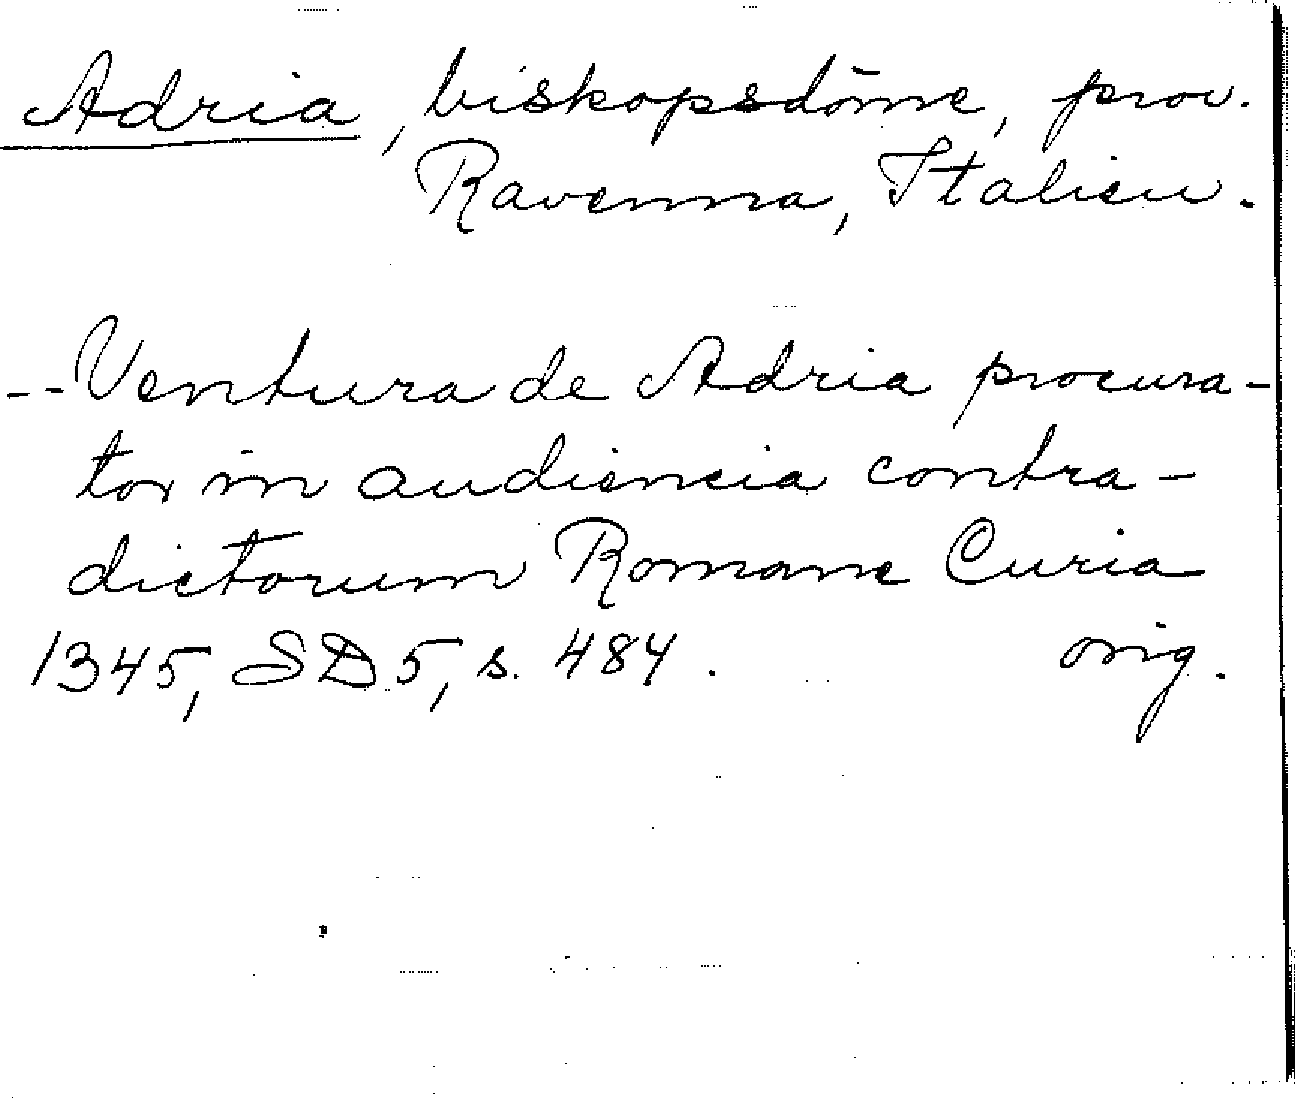 Adria, biskopsdöme, prov.
Ravenna, Italien.
-- Ventura de Adria procura-
tor in audiencia contra-
dictorum Romane Curia
1345, SD 5, s. 484. orig.